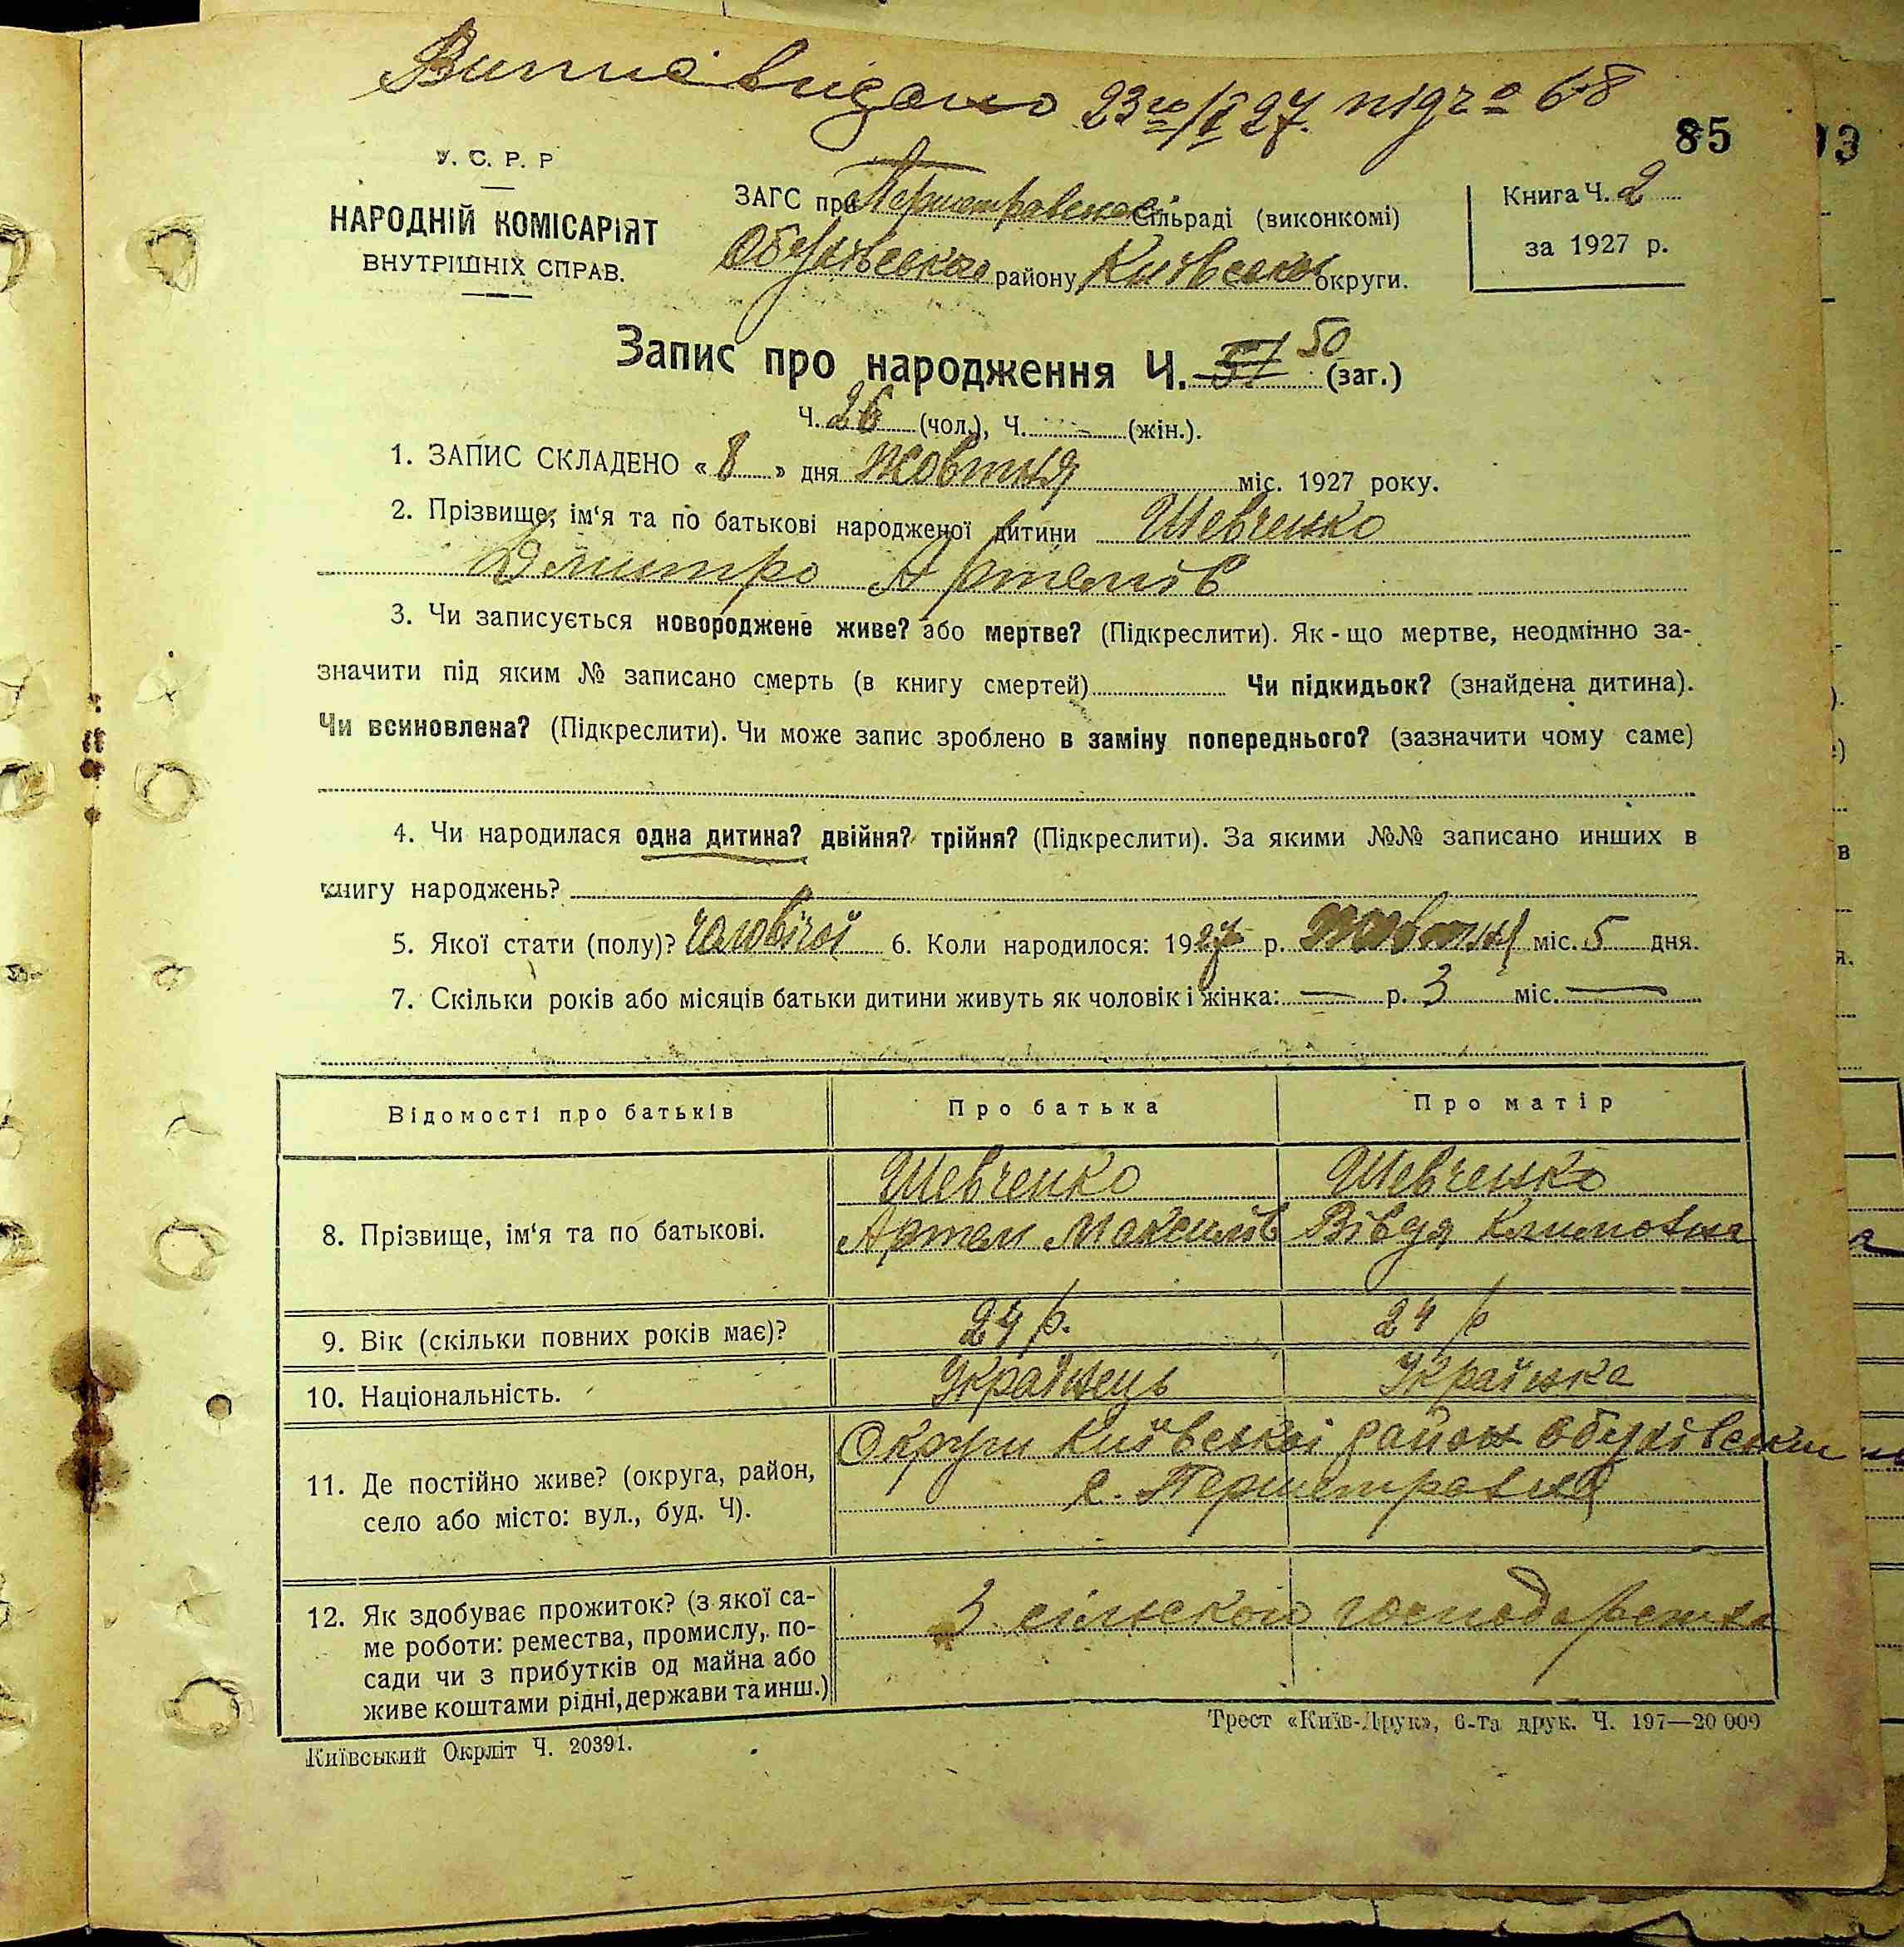 Випис видано 23го/X 27. підго 68
85
13
У. С. Р. Р
НАРОДНІЙ КОМІСАРІЯТ
ВНУТРІШНІХ СПРАВ.
ЗАГС при Першетравенск Сільраді (виконкомі)
Обухівського району Київської округи.
Книга Ч. 2
за 1927 р.
Запис про народження Ч. 51 50 (заг.)
Ч. 26 (чол.), Ч. - (жін.).
1. ЗАПИС СКЛАДЕНО « 8 » дня Жовтня міс. 1927 року.
2. Прізвище, ім‘я та по батькові народженої дитини Шевченко
Дмитро Артемів
3. Чи записується новороджене живе? або мертве? (Підкреслити). Як-що мертве, неодмінно за-
значити під яким № записано смерть (в книгу смертей) Чи підкидьок? (знайдена дитина).
Чи всиновлена? (Підкреслити). Чи може запис зроблено в заміну попереднього? (зазначити чому саме)
4. Чи народилася одна дитина? двійня? трійня? (Підкреслити). За якими №№ записано инших в
книгу народжень?
5. Якої стати (полу)? чоловічої 6. Коли народилося: 1927 р. Жовтня міс. 5 дня.
7. Скільки років або місяців батьки дитини живуть як чоловік і жінка: — р. 3 міс. —
Відомості про батьків Про батька Про матір
Шевченко Шевченко
8. Прізвище, ім‘я та по батькові. Артем Максимів Вівдя Климовна
9. Вік (скільки повних років має)? 24 р. 24 р
10. Національність. Українець Українка
Округи Київської район Обухівський
11. Де постійно живе? (округа, район,
село або місто: вул., буд. Ч). с. Першетравня
12. Як здобуває прожиток? (з якої са-
ме роботи: ремества, промислу, по-
сади чи з прибутків од майна або
живе коштами рідні, держави та инш.)
З сільского господарства
Київський Окрліт Ч. 20391.
Трест «Київ-Друк», 6-та друк. Ч. 197—20 000